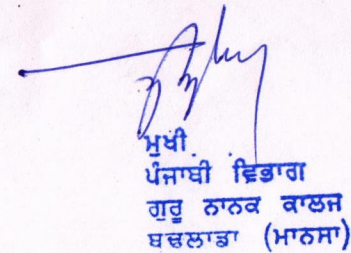 ਮੁਖੀ
ਪੰਜਾਬੀ ਵਿਭਾਗ
ਗੁਰੂ ਨਾਨਕ ਕਾਲਜ
ਬਢਲਾਡਾ (ਮਾਨਸਾ)